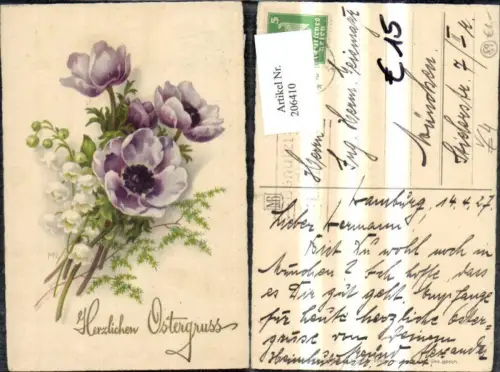 Herzlichen Ostergruss
5
Artikel Nr.
206410
€ 15
Herrn
Ing. Herm.
München.
7/I r.
Hamburg, 14.4.27
Lieber Hermann!
Bist Du wohl noch in
München? Ich hoffe, dass
es Dir gut geht. Empfange
für heute herzliche Oster-
grüse von Deinem
Freund Alexander